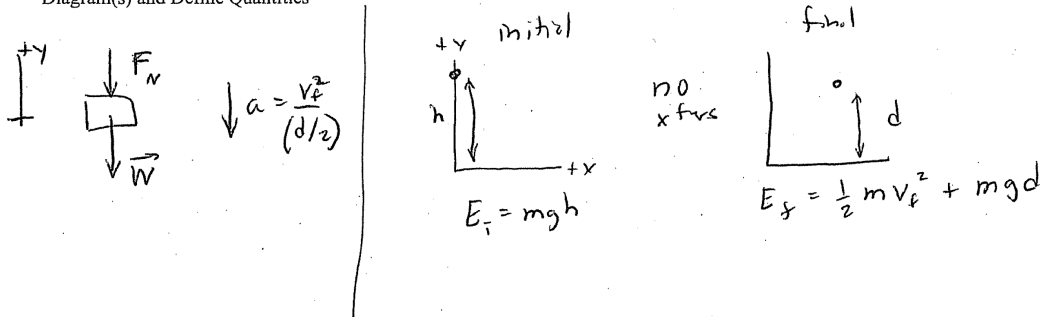 Diagram(s) and Define Quantities
+y
F_N
W⃗
a = v_f²/(d/2)
initial
+y
h
+x
E_i = mgh
no
xfers
final
d
E_f = ½ mv_f² + mgd